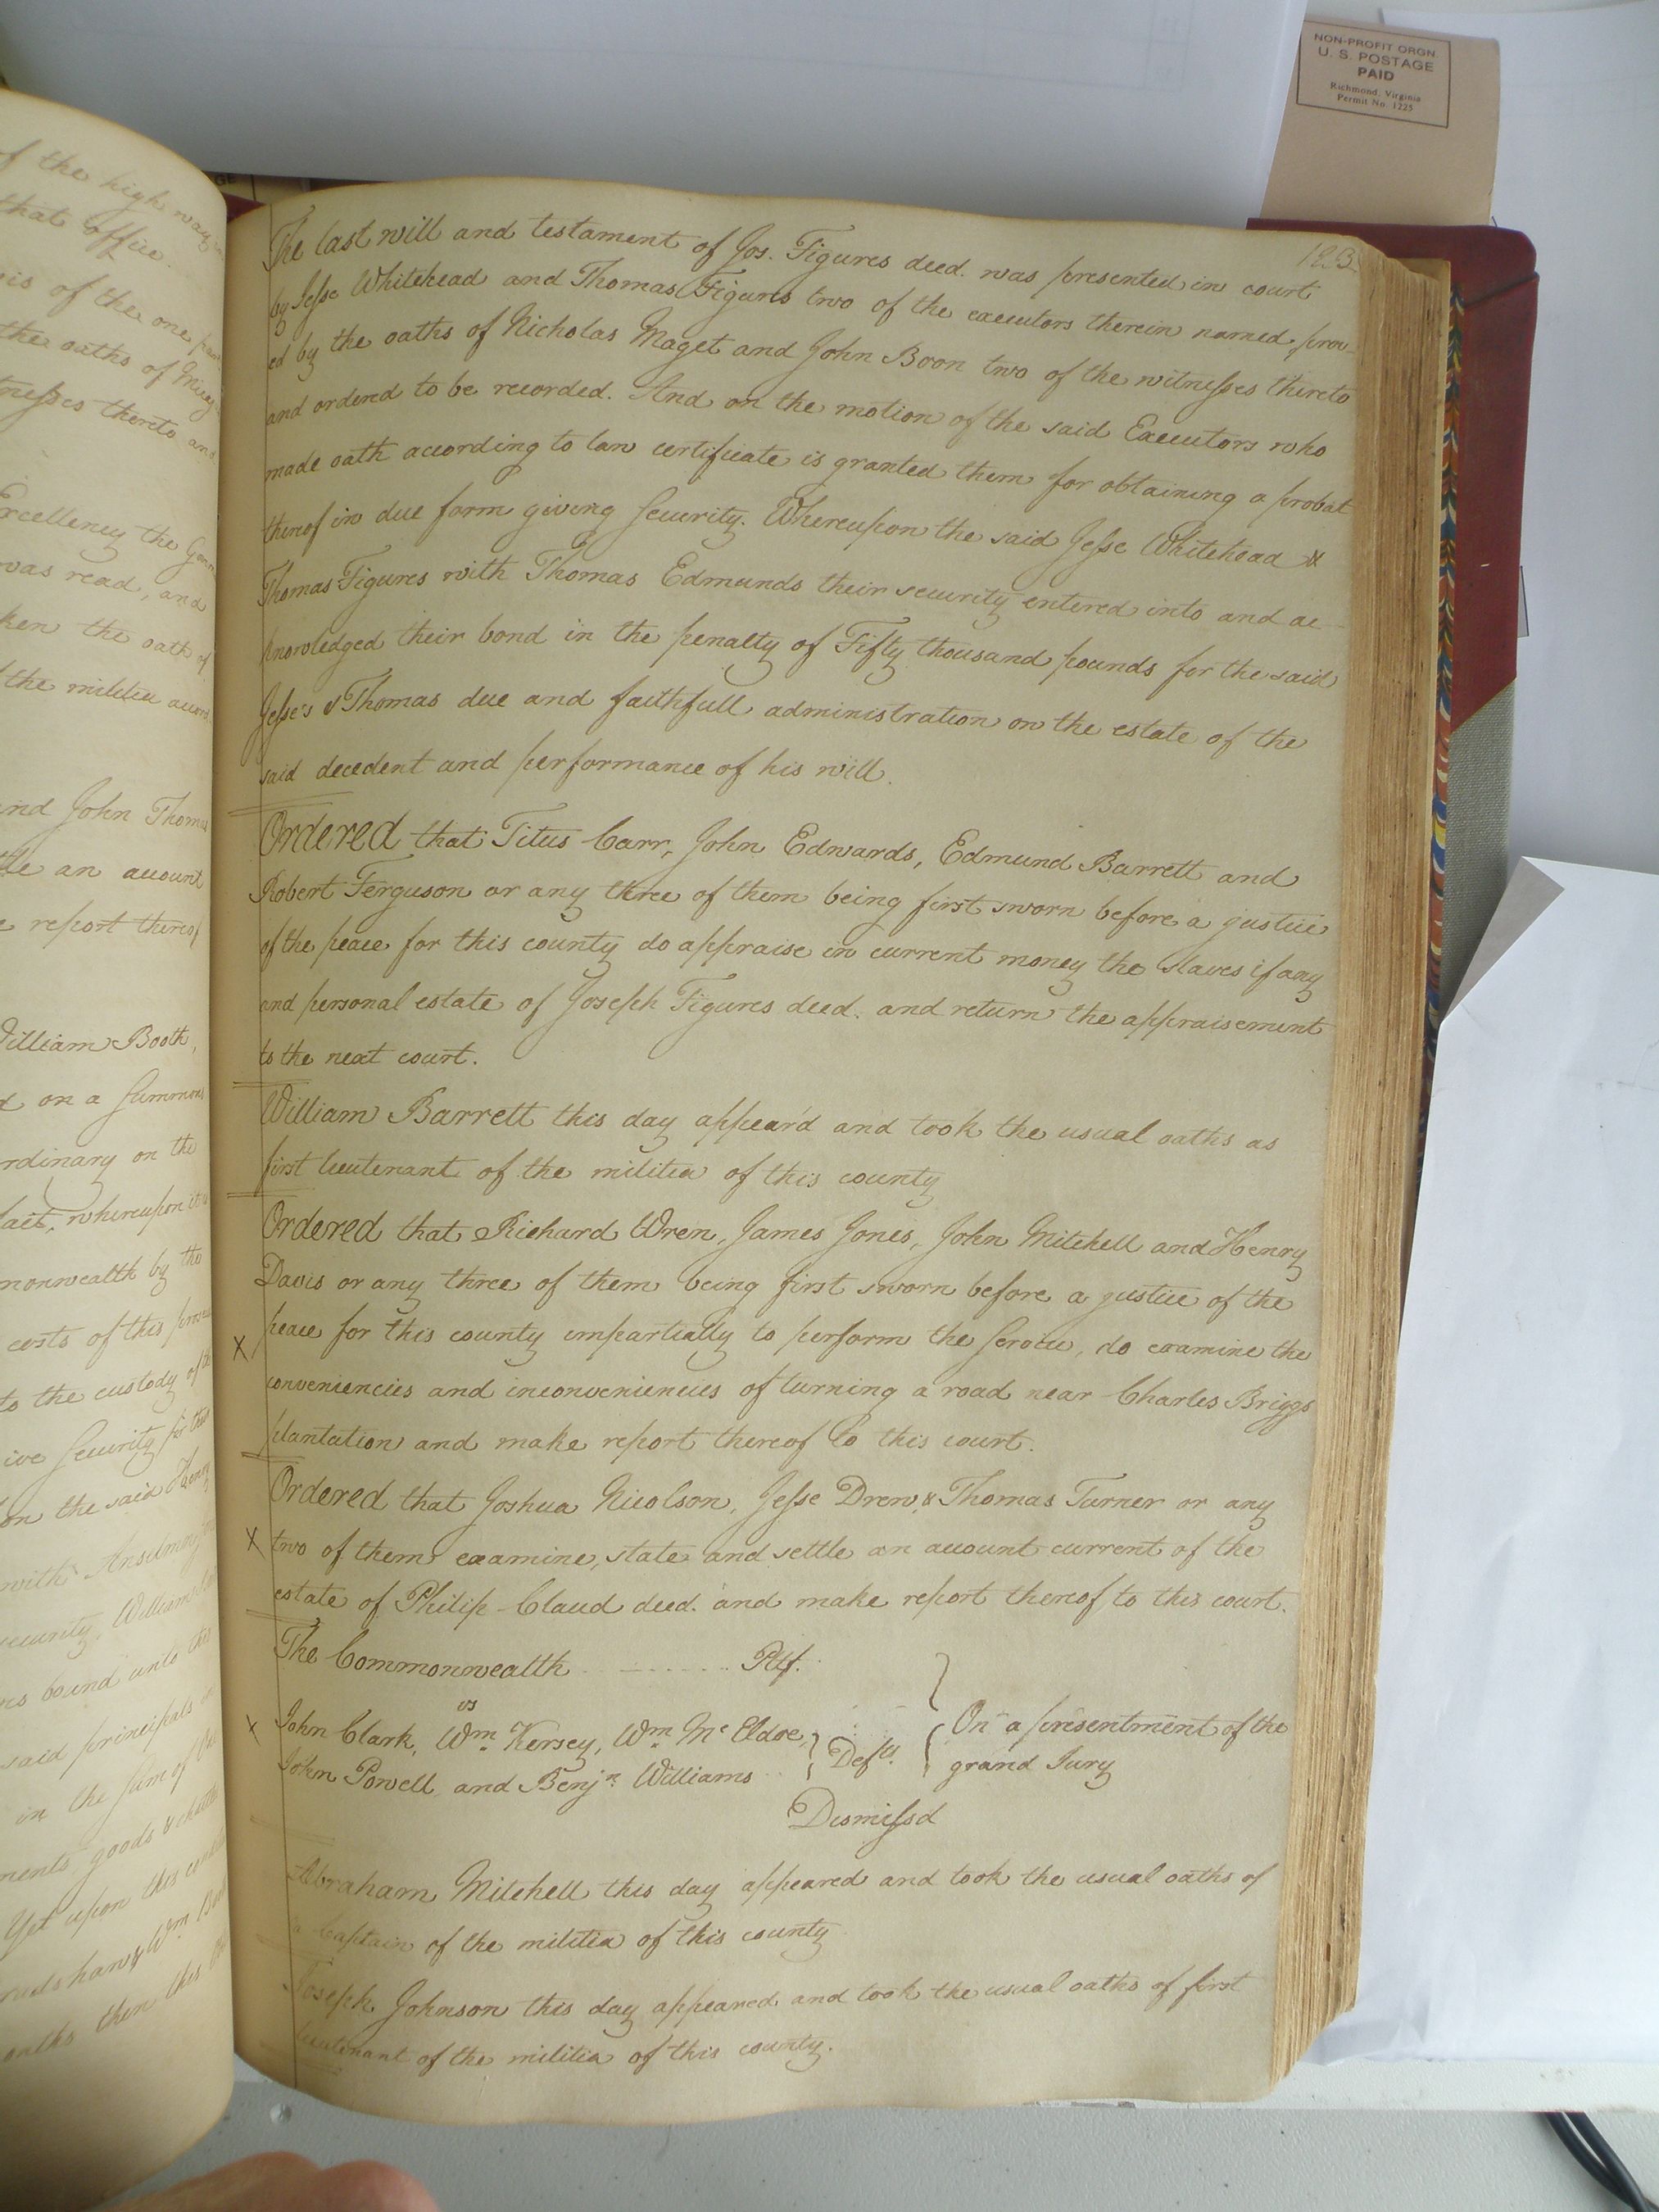 NON-PROFIT ORGN.
U. S. POSTAGE
PAID
Richmond, Virginia
Permit No. 1225
of the high way
that office.
is of the one
the oaths of
nesses thereto and
Excellency the
was read, and
ken the oath of
the militia
and John Thomas
tle an account
report thereof
William Booth,
on a Summons
rdinary on the
whereupon
monwealth by the
costs of this
to the custody of
ive Security for
on the said Henry
with
security, William
rs bound unto
said principals
in the sum of
ments goods & chattles
Yet upon this
oaths then this
123
The last will and testament of Jos. Figures deed. was presented in court
by Jesse Whitehead and Thomas Figures two of the executors therein named, prov-
ed by the oaths of Nicholas Maget and John Boon two of the witnesses thereto
and ordered to be recorded. And on the motion of the said Executors who
made oath according to law certificate is granted them for obtaining a probat
thereof in due form giving Security. Whereupon the said Jesse Whitehead &
Thomas Figures with Thomas Edmunds their security entered into and ac-
knowledged their bond in the penalty of Fifty thousand pounds for the said
Jesse's & Thomas due and faithfull administration on the estate of the
said decedent and performance of his will.
Ordered that Titus Carr, John Edwards, Edmund Barrett and
Robert Ferguson or any three of them being first sworn before a justice
of the peace for this county do appraise in current money the slaves if any
and personal estate of Joseph Figures deed. and return the appraisement
to the next court.
William Barrett this day appear'd and took the usual oaths as
first lieutenant of the militia of this county
Ordered that Richard Wren, James Jones, John Mitchell and Henry
Davis or any three of them being first sworn before a justice of the
X peace for this county impartially to perform the Service, do examine the
conveniencies and inconveniencies of turning a road near Charles Briggs
plantation and make report thereof to this court.
Ordered that Joshua Nicolson, Jesse Drew, & Thomas Turner or any
X two of them examine, state and settle an account current of the
estate of Philip Claud deed. and make report thereof to this court.
The Commonwealth ........ Plf.
vs
X John Clark, Wm. Kersey, Wm. McEldoe, } Defts. { On a presentment of the
John Powell and Benjn. Williams grand Jury
Dismissd
Abraham Mitchell this day appeared and took the usual oaths of
a Captain of the militia of this county
Joseph Johnson this day appeared and took the usual oaths of first
lieutenant of the militia of this county.